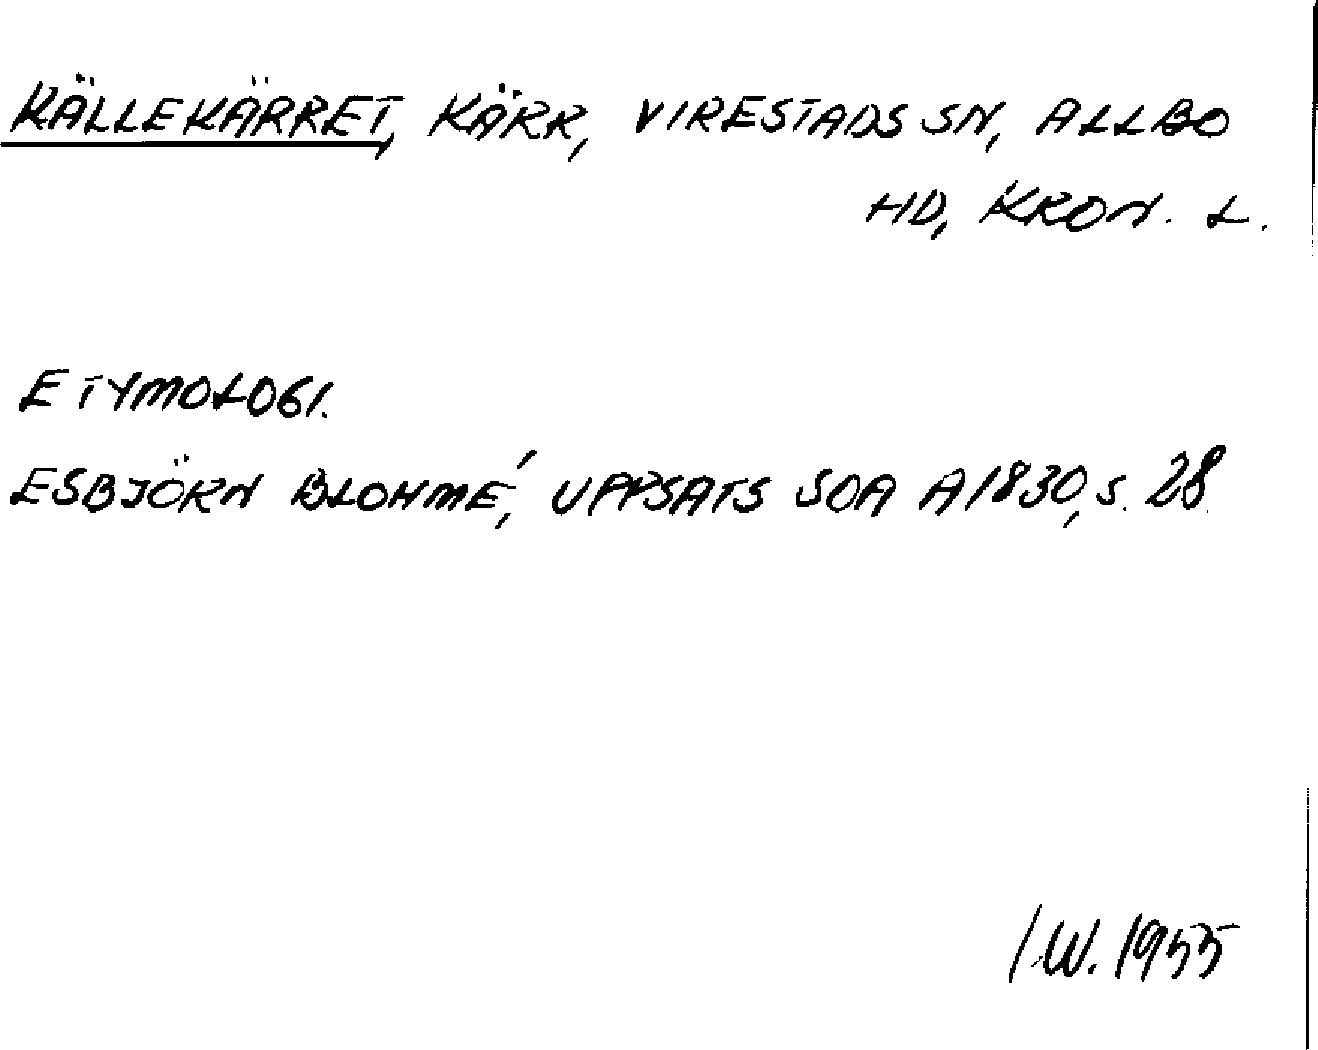 KÄLLEKÄRRET, KÄRR, VIRESTADS SN, ALLBO
HD, KRON. L.
ETYMOLOGI.
ESBJÖRN BLOHMÉ, UPPSATS SOA A1830, S. 28.
I.W. 1955